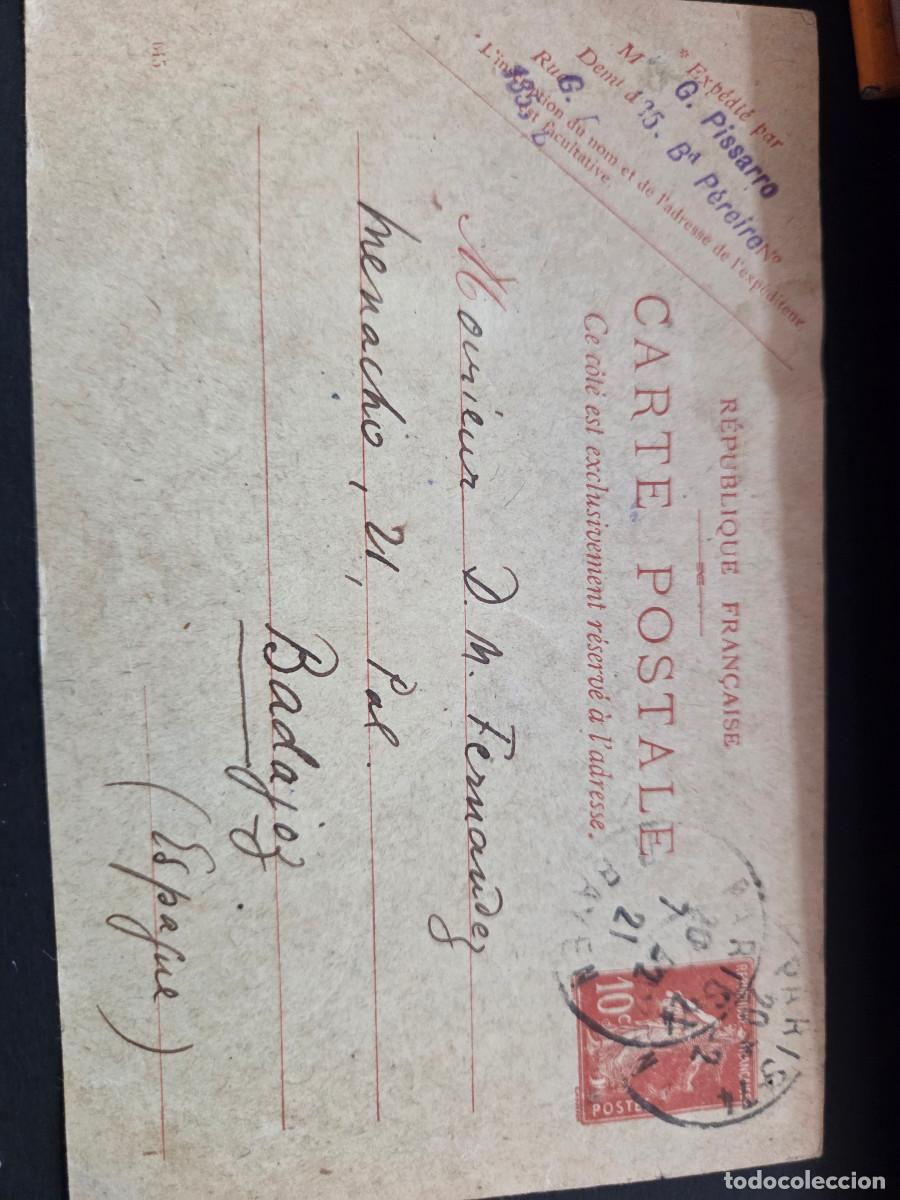 * Expédié par
M G. Pissarro
Demt à 135. Bd Péreire No
Rue G.
* L'inscription du nom et de l'adresse de l'expéditeur
est facultative.
645
RÉPUBLIQUE FRANÇAISE
CARTE POSTALE
Ce côté est exclusivement réservé à l'adresse.
PARIS
PARIS
20
21
10c
POSTES
Monsieur D. M. Fernandez
Menacho, 21, Pal.
Badajoz
(Espagne)
todocoleccion